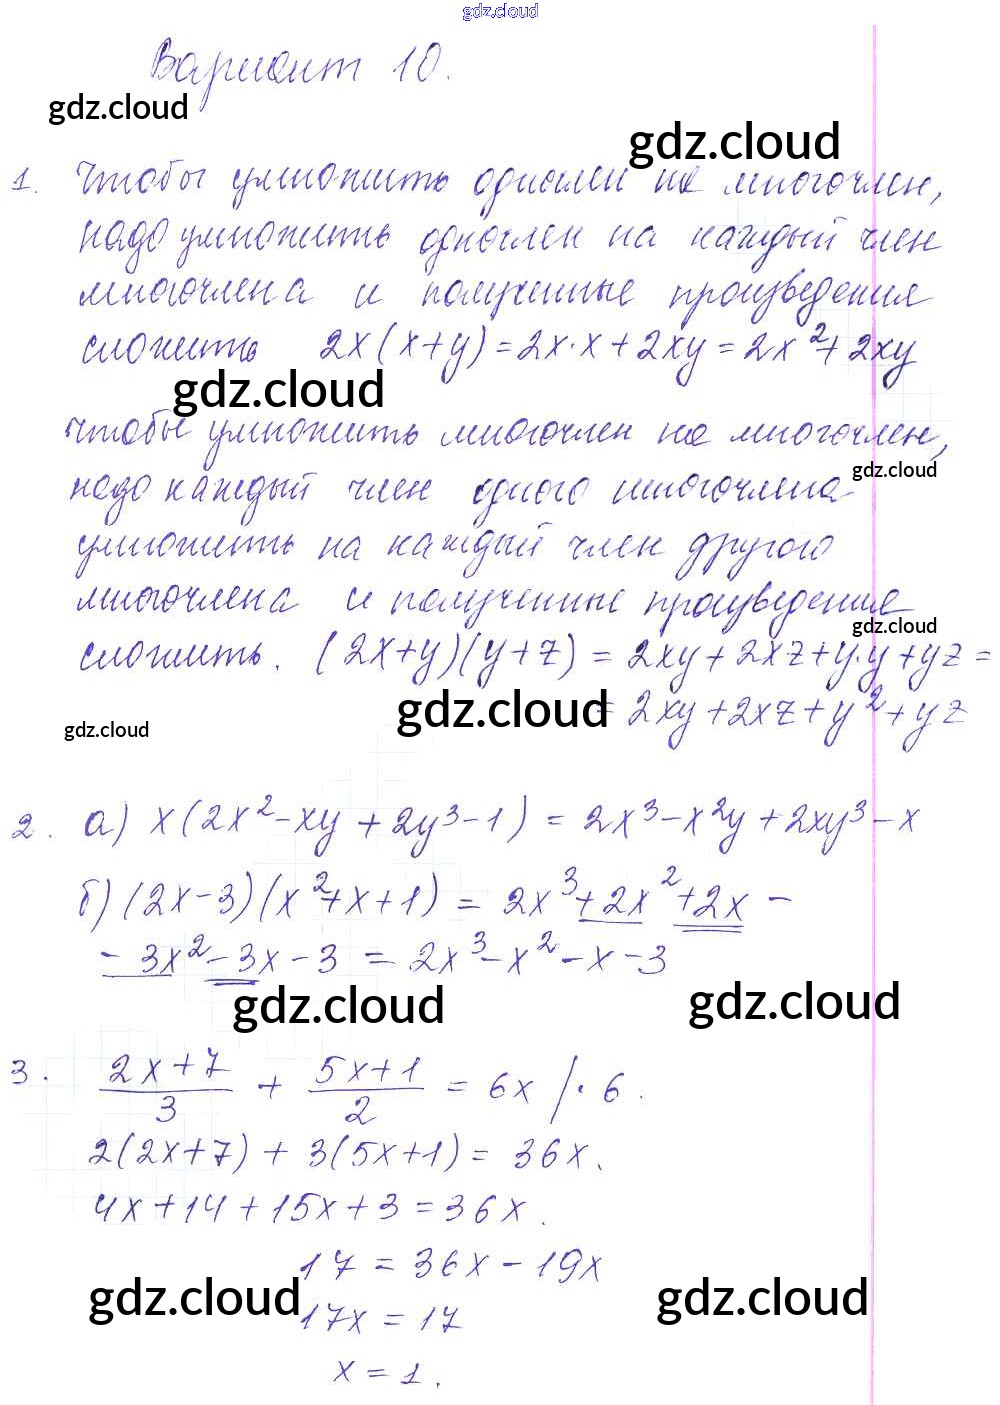 gdz.cloud
Вариант 10.
gdz.cloud
gdz.cloud
1. Чтобы умножить одночлен на многочлен,
надо умножить одночлен на каждый член
многочлена и полученные произведения
сложить 2x(x+y)=2x·x+2xy=2x²+2xy
gdz.cloud
Чтобы умножить многочлен на многочлен,
gdz.cloud
надо каждый член одного многочлена
умножить на каждый член другого
многочлена и полученные произведения
gdz.cloud
сложить. (2x+y)(y+z) = 2xy+2xz+y·y+yz =
gdz.cloud
= 2xy+2xz+y²+yz
gdz.cloud
2. а) x(2x²-xy+2y³-1) = 2x³-x²y+2xy³-x
б) (2x-3)(x²+x+1) = 2x³+2x²+2x-
-3x²-3x-3 = 2x³-x²-x-3
gdz.cloud
gdz.cloud
3. (2x+7)/3 + (5x+1)/2 = 6x /·6.
2(2x+7) + 3(5x+1) = 36x.
4x+14+15x+3=36x.
17 = 36x-19x
gdz.cloud
gdz.cloud
17x = 17
x = 1.